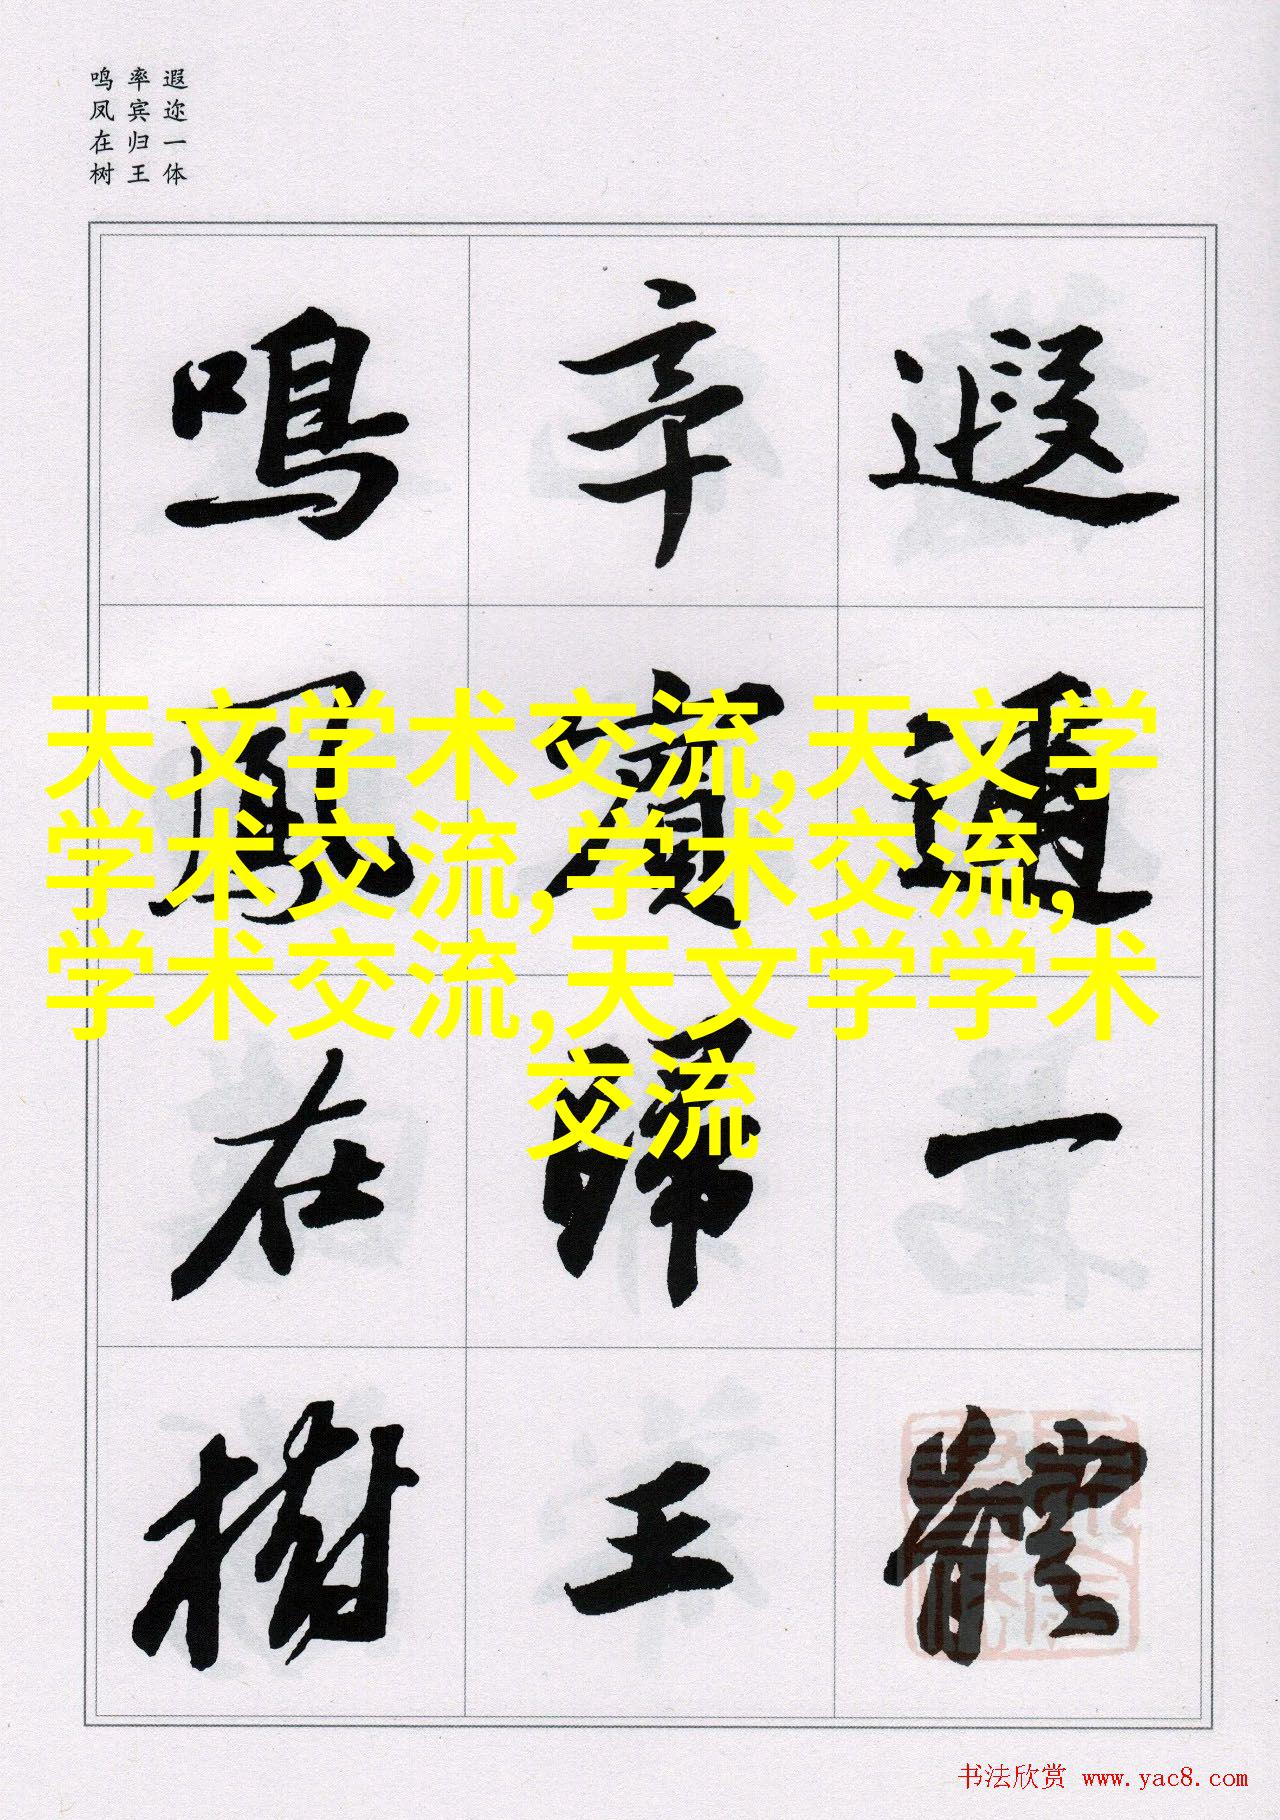 遐迩一体
率宾归王
鸣凤在树
遐邇一體
率賓歸王
鳴鳳在樹
天文学术交流,天文学
学术交流,学术交流,
学术交流,天文学学术
交流
书法欣赏 www.yac8.com